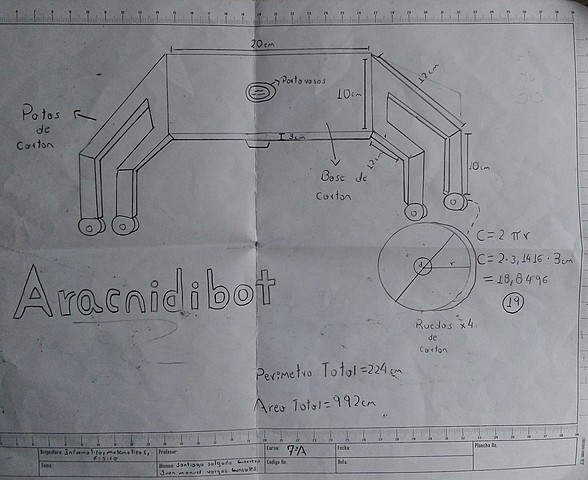 20cm
Portavasos
10cm
12cm
Patas
de
Carton
3cm
12cm
10cm
Base de
Carton
C=2 πr
C=2·3,1416·3cm
=18,8496
19
d
r
Aracnidibot
Ruedas x4
de
Carton
Perimetro Total=224cm
Area Total=992cm
Asignatura: Informatica, matematicas,
Fisica
Profesor:
Curso: 7°A
Fecha:
Plancha No.
Tema:
Alumno: Santiago salgado
Juan manuel vargas Gonzales
Código No.
Nota: